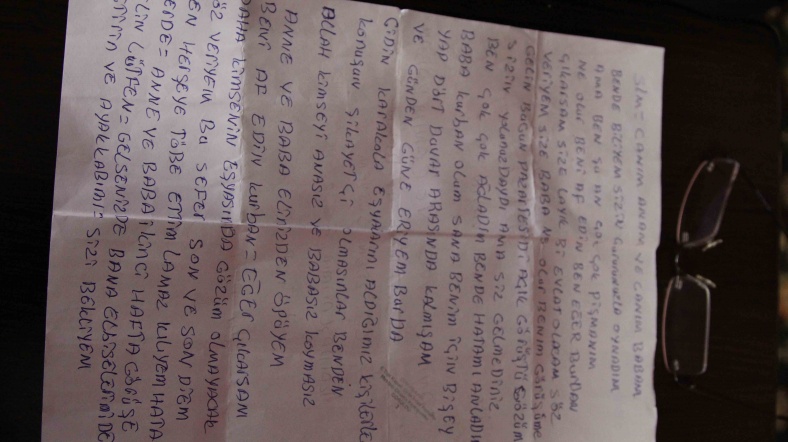 CANIM ANAM VE CANIM BABAM
BENDE BİLİYEM SİZİN GURURUNUZLA OYNADIM
AMA BEN ŞU AN ÇOK ÇOK PİŞMANIM
NE OLUR BENİ AF EDİN BEN EĞER BURDAN
ÇIKARSAM SİZE LAYIK Bİ EVLAT OLCAM SÖZ
VERİYEM SİZE BABA NE OLUR BENİM GÖRÜŞÜME
GELİN BUGÜN PAZARTESİDİ AÇIK GÖRÜŞTÜ GÖZÜM
SİZİN YOLNUZDAYDI AMA SİZ GELMEDİNİZ
BEN ÇOK ÇOK AĞLADIM BENDE HATAMI ANLADI
BABA KURBAN OLUM SANA BENİM İÇİN BİŞEY
YAP DÖRT DUVAR ARASINDA KALMIŞAM
VE GÜNDEN GÜNE ERİYEM BURDA
GİDİN KARAKOLA EŞYALARINI ALDIĞIMIZ KİŞİLERLE
KONUŞUN ŞİKAYETÇİ OLMASINLAR BENDEN
ALLAH KİMSEYİ ANASIZ VE BABASIZ KOYMASIZ
ANNE VE BABA ELİNİZDEN ÖPÜYEM
BENİ AF EDİN KURBAN = EĞER ÇIKARSAM
DAHA KİMSENİN EŞYASINDA GÖZÜM OLMAYACAK
SÖZ VERİYEM BU SEFER SON VE SON DİEM
EN HERŞEYE TÖBE ETTİM LAMAZ KILIYEM HATA
= ANNE VE BABA İKİNCİ HAFTA GÖRÜŞE
LÜTFEN = GELSENİZDE BANA ELBİSELERİMİDE
VE AYAKKABIMI = SİZİ BEKLİYEM